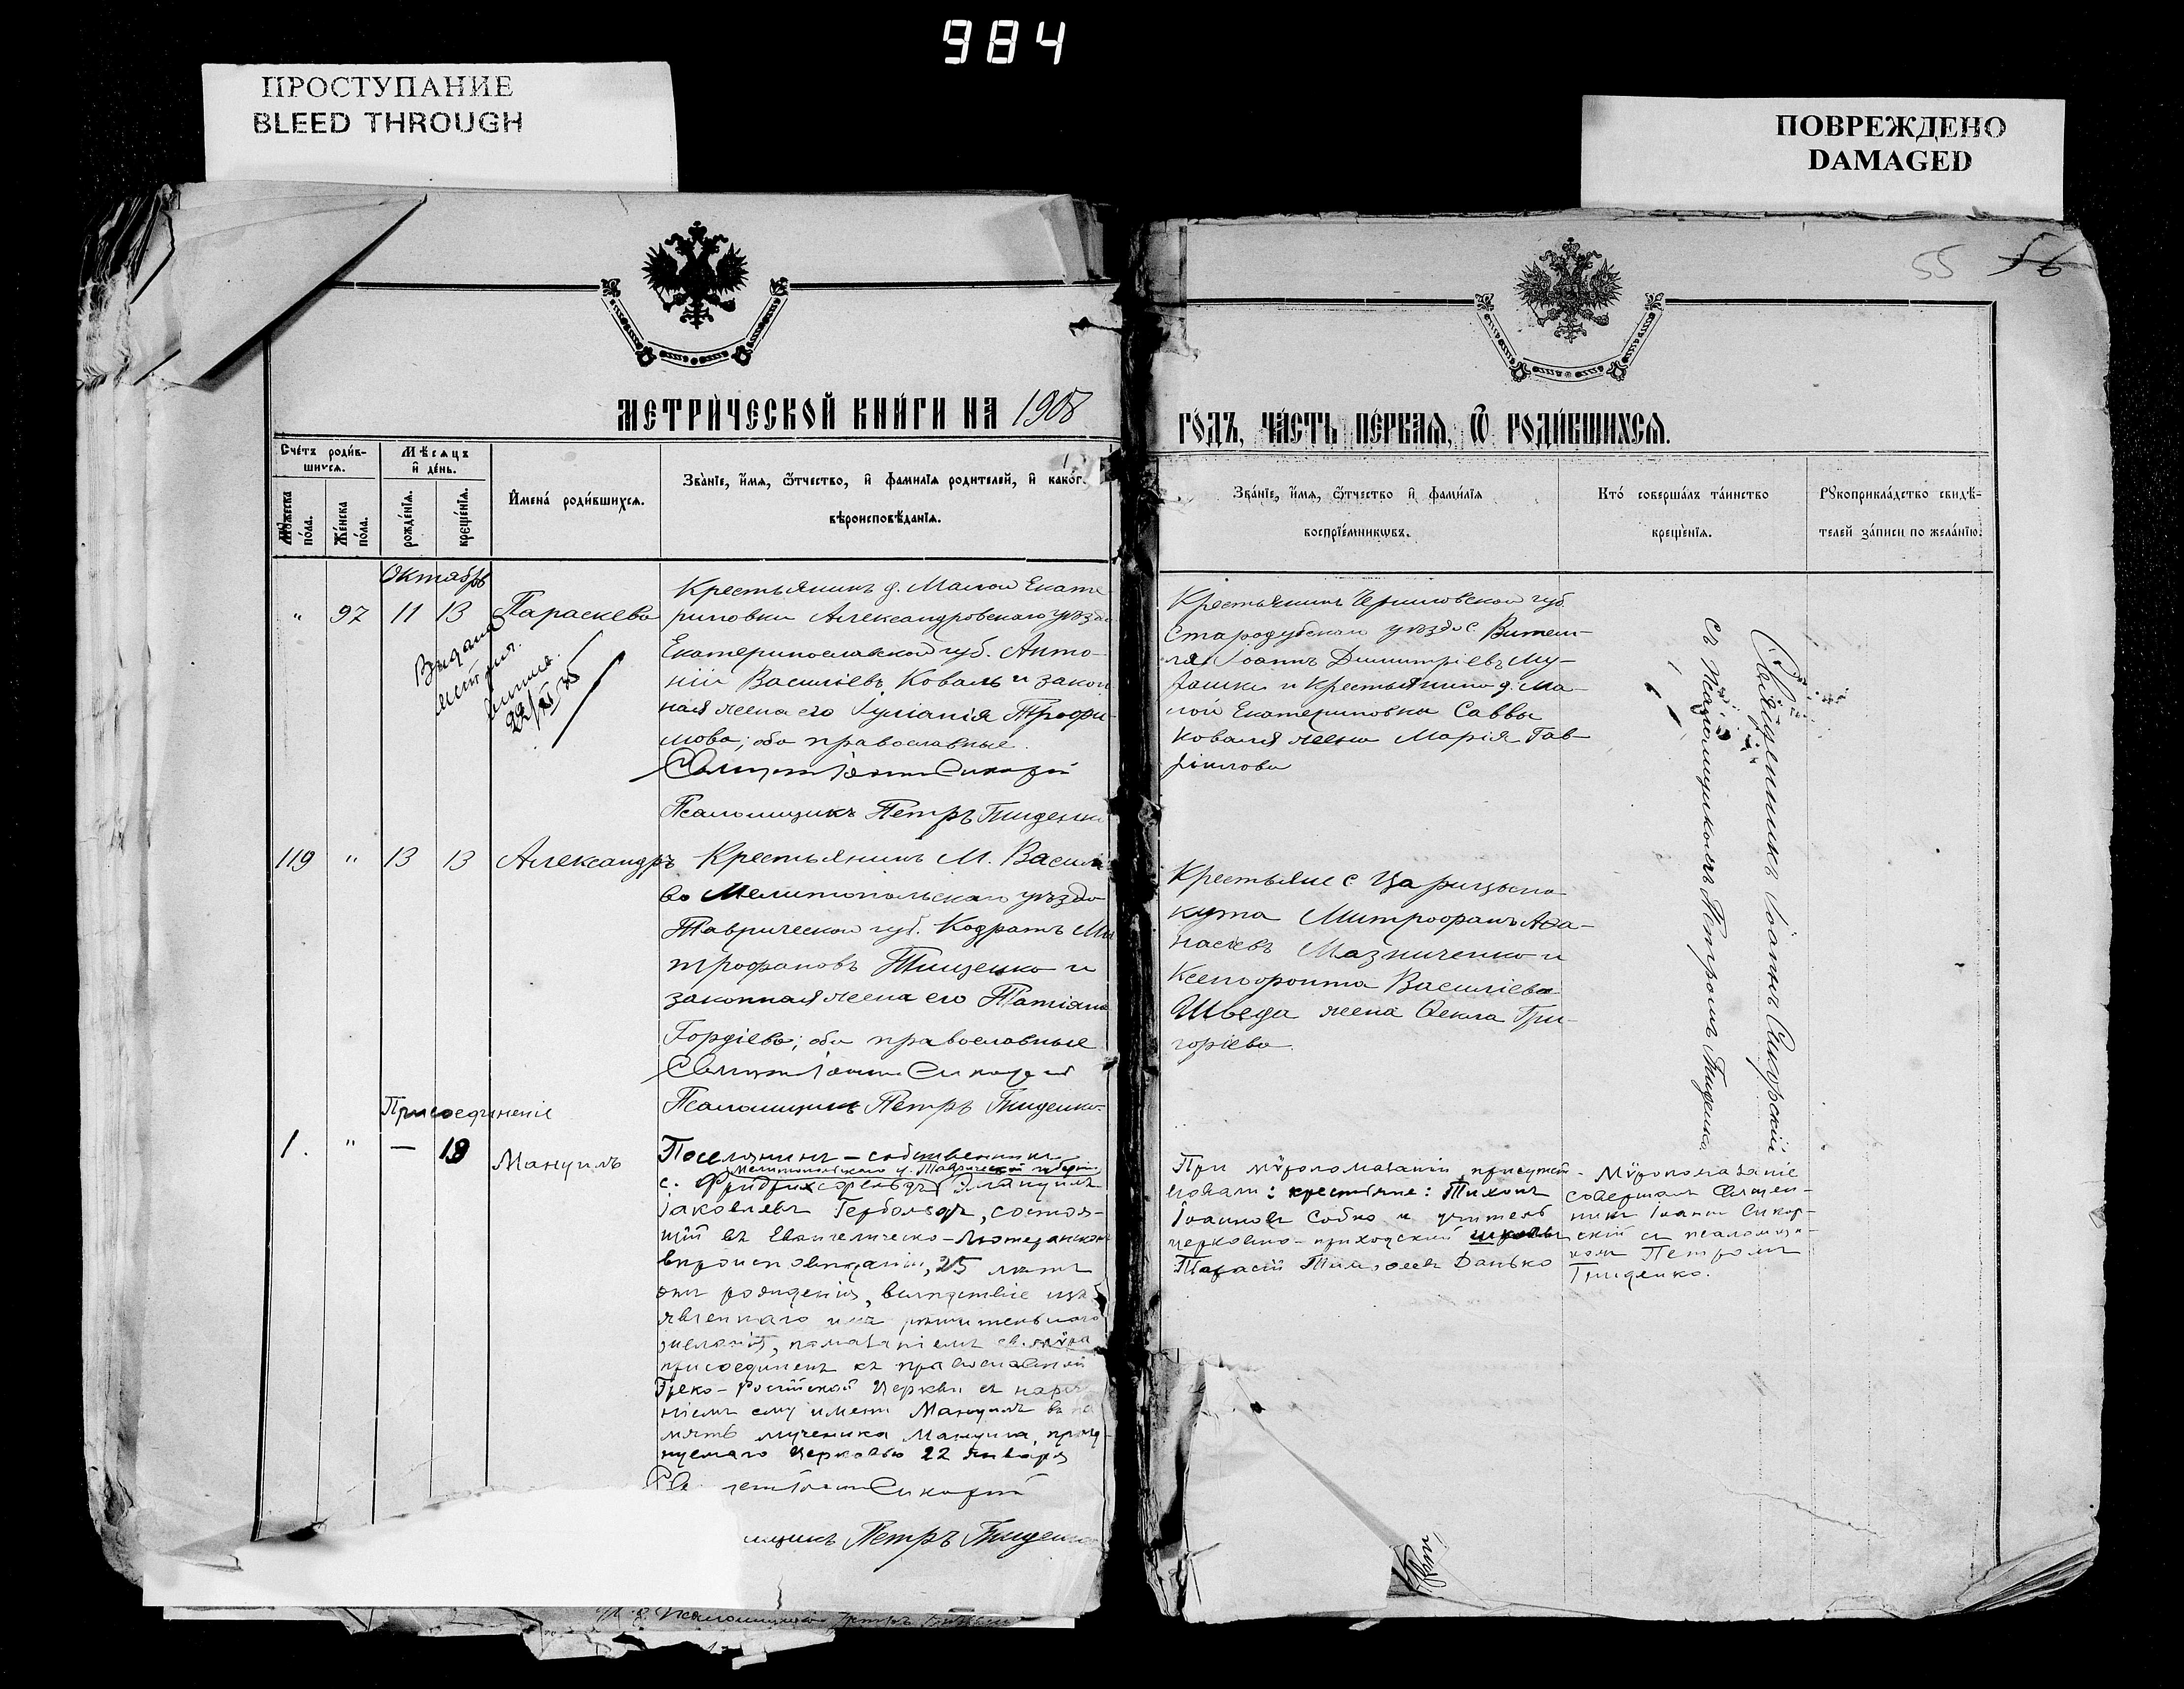 984
ПРОСТУПАНИЕ
BLEED THROUGH
ПОВРЕЖДЕНО
DAMAGED
55 56
МЕТРИ́ЧЕСКОЙ КНИ́ГИ НА 1908
ГО́ДЪ, ЧА́СТЬ ПЕ́РВАЯ, Ѿ РОДИ́ВШИХСЯ.
Сче́тъ роди́в-
шихся.
Мѣсяцъ
и҆ де́нь.
Му́жеска
по́ла.
Же́нска
по́ла.
рожде́нїя.
креще́нїя.
И҆мена́ роди́вшихся.
Зва́нїе, и҆́мя, ѻ҆́тчество, и҆ фами́лїя роди́телей, и҆ како́г.
вѣроисповѣ́данїя.
Зва́нїе, и҆́мя, ѻ҆́тчество и҆ фами́лїя
воспрїе́мникѡвъ.
Кто́ соверша́лъ та́инство
креще́нїя.
Рꙋкоприкла́дство свидѣ́-
телей за́писи по жела́нїю.
Октябрь
" 97 11 13 Параскева
Крестьянинъ д. Малой Екате
риновки Александровскаго уѣзда
Екатеринославской губ. Анто-
ній Василіевъ Коваль и закон
ная жена его Іуліанія Трофи-
мова; оба православные.
Священ. Іоаннъ Сикорскій
Псаломщикъ Петръ Гниденко
Выдана
22/XI 35
Крестьянинъ Черниговской губ.
Стародубскаго уѣзда с.
Іоаннъ Димитріевъ Му-
рашки и крестьянина д. Ма-
лой Екатериновки Саввы
Коваля жена Марія Гав-
ріилова
Священникъ Іоаннъ Сикорскій
съ Псаломщикомъ Петромъ Гниденко
119 " 13 13 Александръ
Крестьянинъ М. Василь
ва Мелитопольскаго уѣзда
Таврической губ. Кодратъ Ми
трофановъ Тищенко и
законная жена его Татіана
Гордіева; оба православные
Священ. Іоаннъ Сикорскій
Псаломщикъ Петръ Гниденко.
Крестьяне с Царицына
кута Митрофанъ Аѳа-
насіевъ Мазниченко и
Ксенофонта Василіева
Шведа жена Ѳекла Гри-
горіева.
Присоединеніе
1. " — 19 Мануилъ
Поселянинъ-собственникъ
Мелитопольскаго у. Таврической губерніи
с. Фридрихсфельдъ Эмануилъ
Іаковлевъ Гербольдъ, состоя-
щій въ Евангелическо-Лютеранском
вѣроисповѣданіи, 25 лѣтъ
отъ рожденія, вслѣдствіе изъ
явленнаго имъ рѣшительнаго
желанія, помазаніемъ св. мѵра
присоединенъ къ православной
Греко-Россійской Церкви съ наре
ніемъ ему имени Мануилъ въ па
мять мученика Мануила, празд-
нуемаго Церковью 22 января
Св Іоаннъ Сикорскій
мщикъ Петръ Гниденко
При мѵропомазаніи присутст-
вовали: крестьяне: Тихонъ
Іоанновъ Собко и учитель
церковно-приходской школы
Тарасій Данько
Мѵропомазаніе
совершалъ Священ-
никъ Іоаннъ Сикор-
скій съ псаломщи-
комъ Петромъ
Гниденко.
Псаломщикъ Петръ